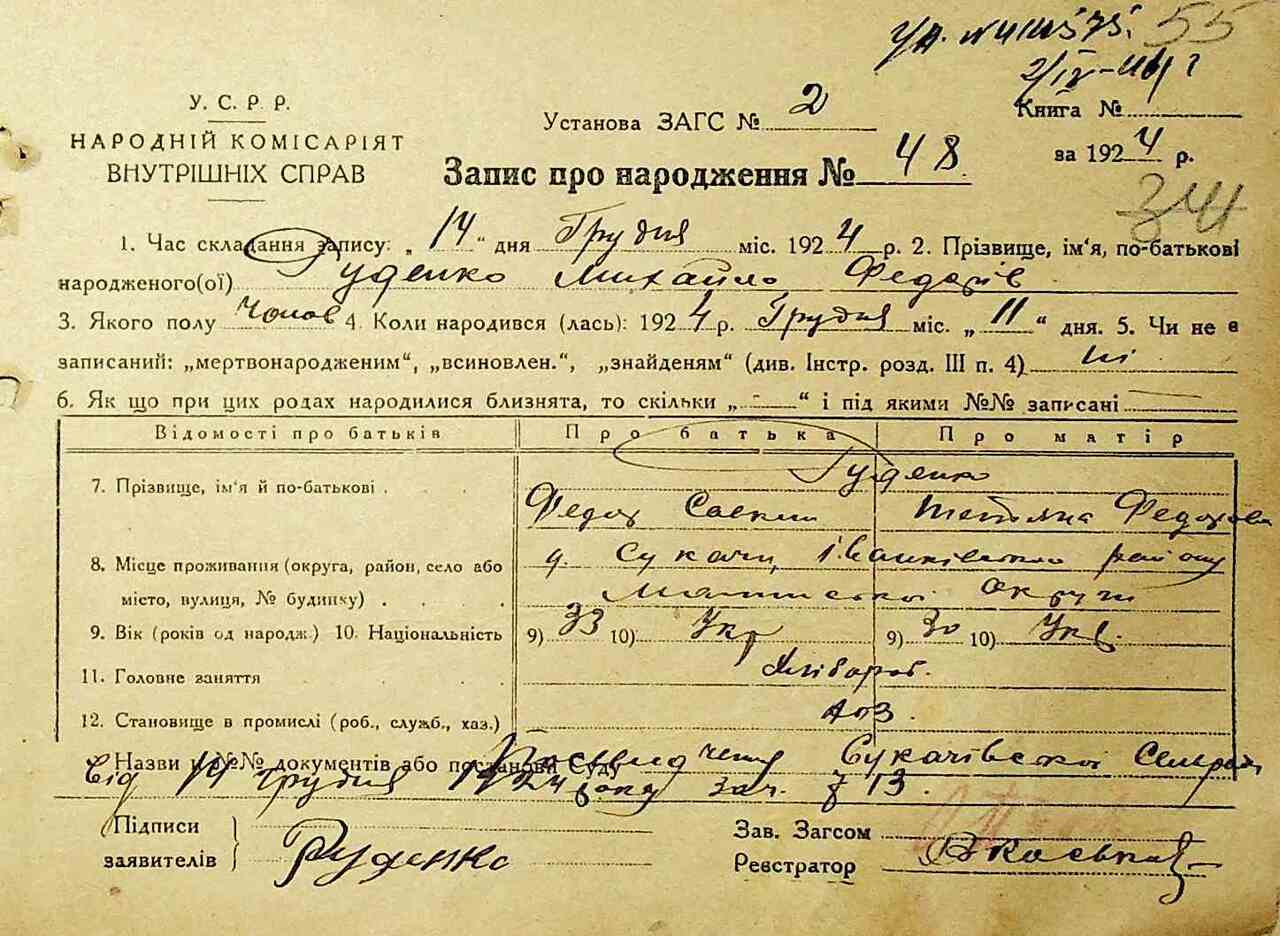 55
2/IV-
У. С. Р. Р.
НАРОДНІЙ КОМІСАРІЯТ
ВНУТРІШНІХ СПРАВ
Установа ЗАГС № 2
Книга №
за 1924 р.
Запис про народження № 48
341
1. Час складання запису: „ 14 “ дня Грудня міс. 1924 р. 2. Прізвище, ім'я, по-батькові
народженого(ої) Руденко Михайло Федорів
3. Якого полу чолов 4. Коли народився (лась): 1924 р. Грудня міс. „ 11 “ дня. 5. Чи не є
записаний: „мертвонародженим“, „всиновлен.“, „знайденям“ (див. Інстр. розд. III п. 4) ні
6. Як що при цих родах народилися близнята, то скільки „ - “ і під якими №№ записані
Відомості про батьків Про батька Про матір
7. Прізвище, ім'я й по-батькові . Руденко
Федор Тетяна Федорова
8. Місце проживання (округа, район, село або с. Сукачи, Іванківського району
місто, вулиця, № будинку) . округи
9. Вік (років од народж.) 10. Національність 9) 33 10) Укр 9) 30 10) Укр.
11. Головне заняття Хлібороб.
12. Становище в промислі (роб., служб., хаз.) хоз.
Назви й №№ документів або постанови Суду Посвидчення Сукачівської Сельради
від 14 Грудня 1924 року за ч. 713.
Підписи
заявителів Руденко
Зав. Загсом
Реєстратор